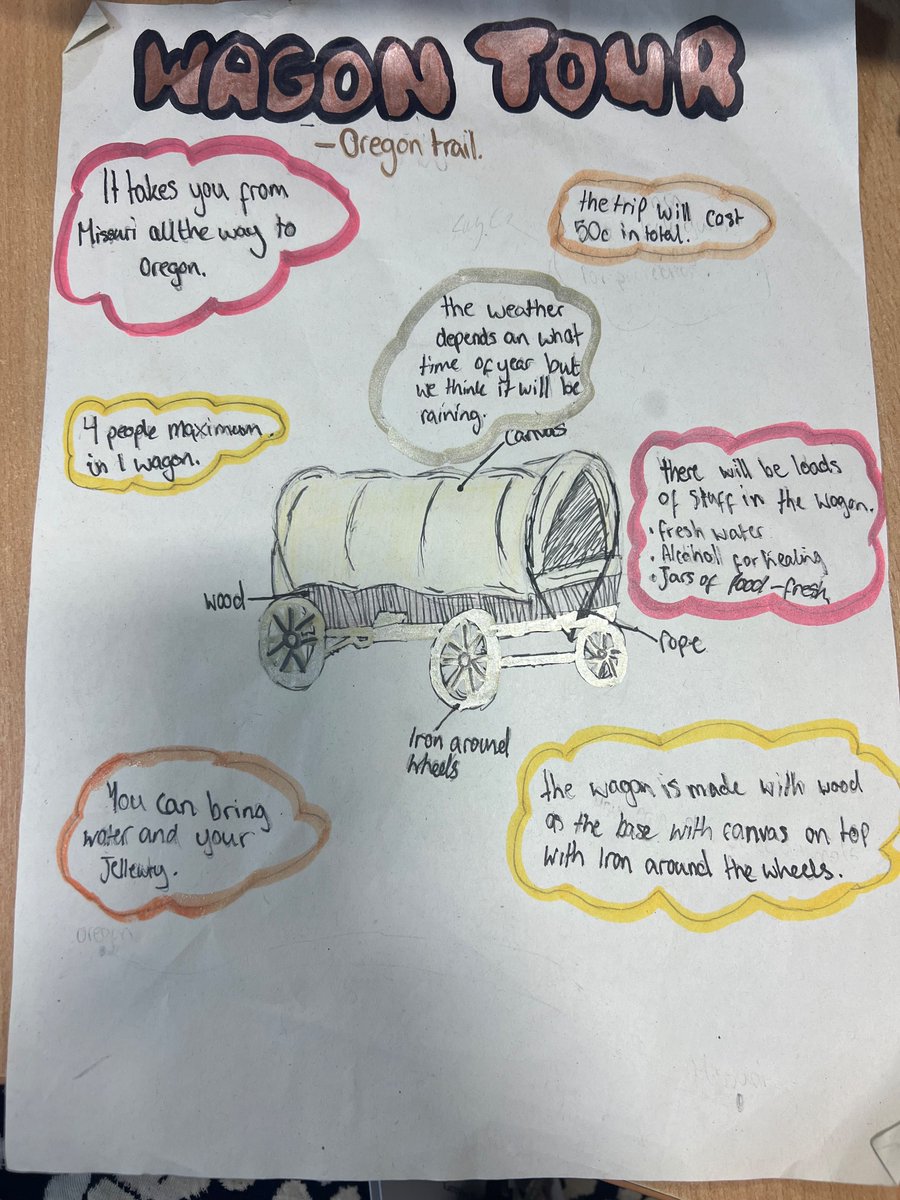 WAGON TOUR
- Oregon trail.
It takes you from
Missouri all the way to
Oregon.
the trip will cost
50c in total.
the weather
depends on what
time of year but
we think it will be
raining.
4 people maximum
in 1 wagon.
canvas
there will be loads
of stuff in the wagon.
• fresh water
• Alcoholl for healing
• Jars of food - fresh
wood
rope
Iron around
wheels
You can bring
water and your
Jellewry.
the wagon is made with wood
as the base with canvas on top
with Iron around the wheels.
oregon